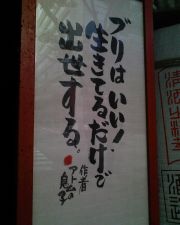 ブリはいい!
生きてるだけで
出世する。
作者
アトムの
息子